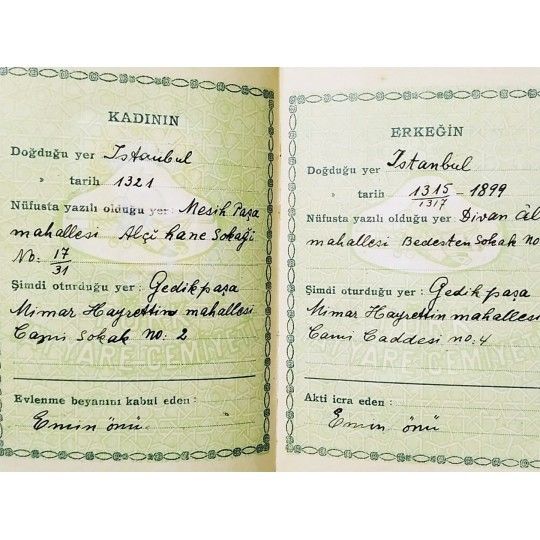 KADININ
Doğduğu yer İstanbul
» tarih 1321
Nüfusta yazılı olduğu yer: Mesih Paşa
mahallesi Alçı hane Sokağı
No: 17/31
Şimdi oturduğu yer : Gedikpaşa
Mimar Hayrettin mahallesi
Cami Sokak no: 2
Evlenme beyanını kabul eden :
Emin önü
ERKEĞİN
Doğduğu yer İstanbul
» tarih 1315/1317 - 1899
Nüfusta yazılı olduğu yer : Divan Âl
mahallesi Bedesten Sokak no
Şimdi oturduğu yer : Gedikpaşa
Mimar Hayrettin mahallesi
Cami Caddesi no: 4
Akti icra eden :
Emin önü